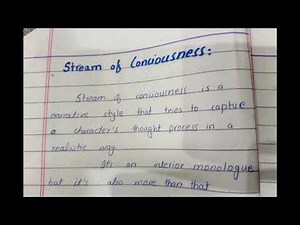 Stream of Conciousness:
Stream of conciousness is a
narrative style that tries to capture
a character's thought process in a
realistic way
Its an interior monologue
but it's also more than that